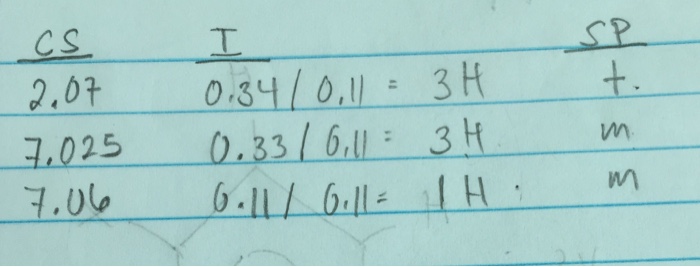 CS I SP
2.07 0.34 / 0.11 = 3H t.
7.025 0.33 / 0.11 = 3H m
7.06 0.11 / 0.11 = 1H. m